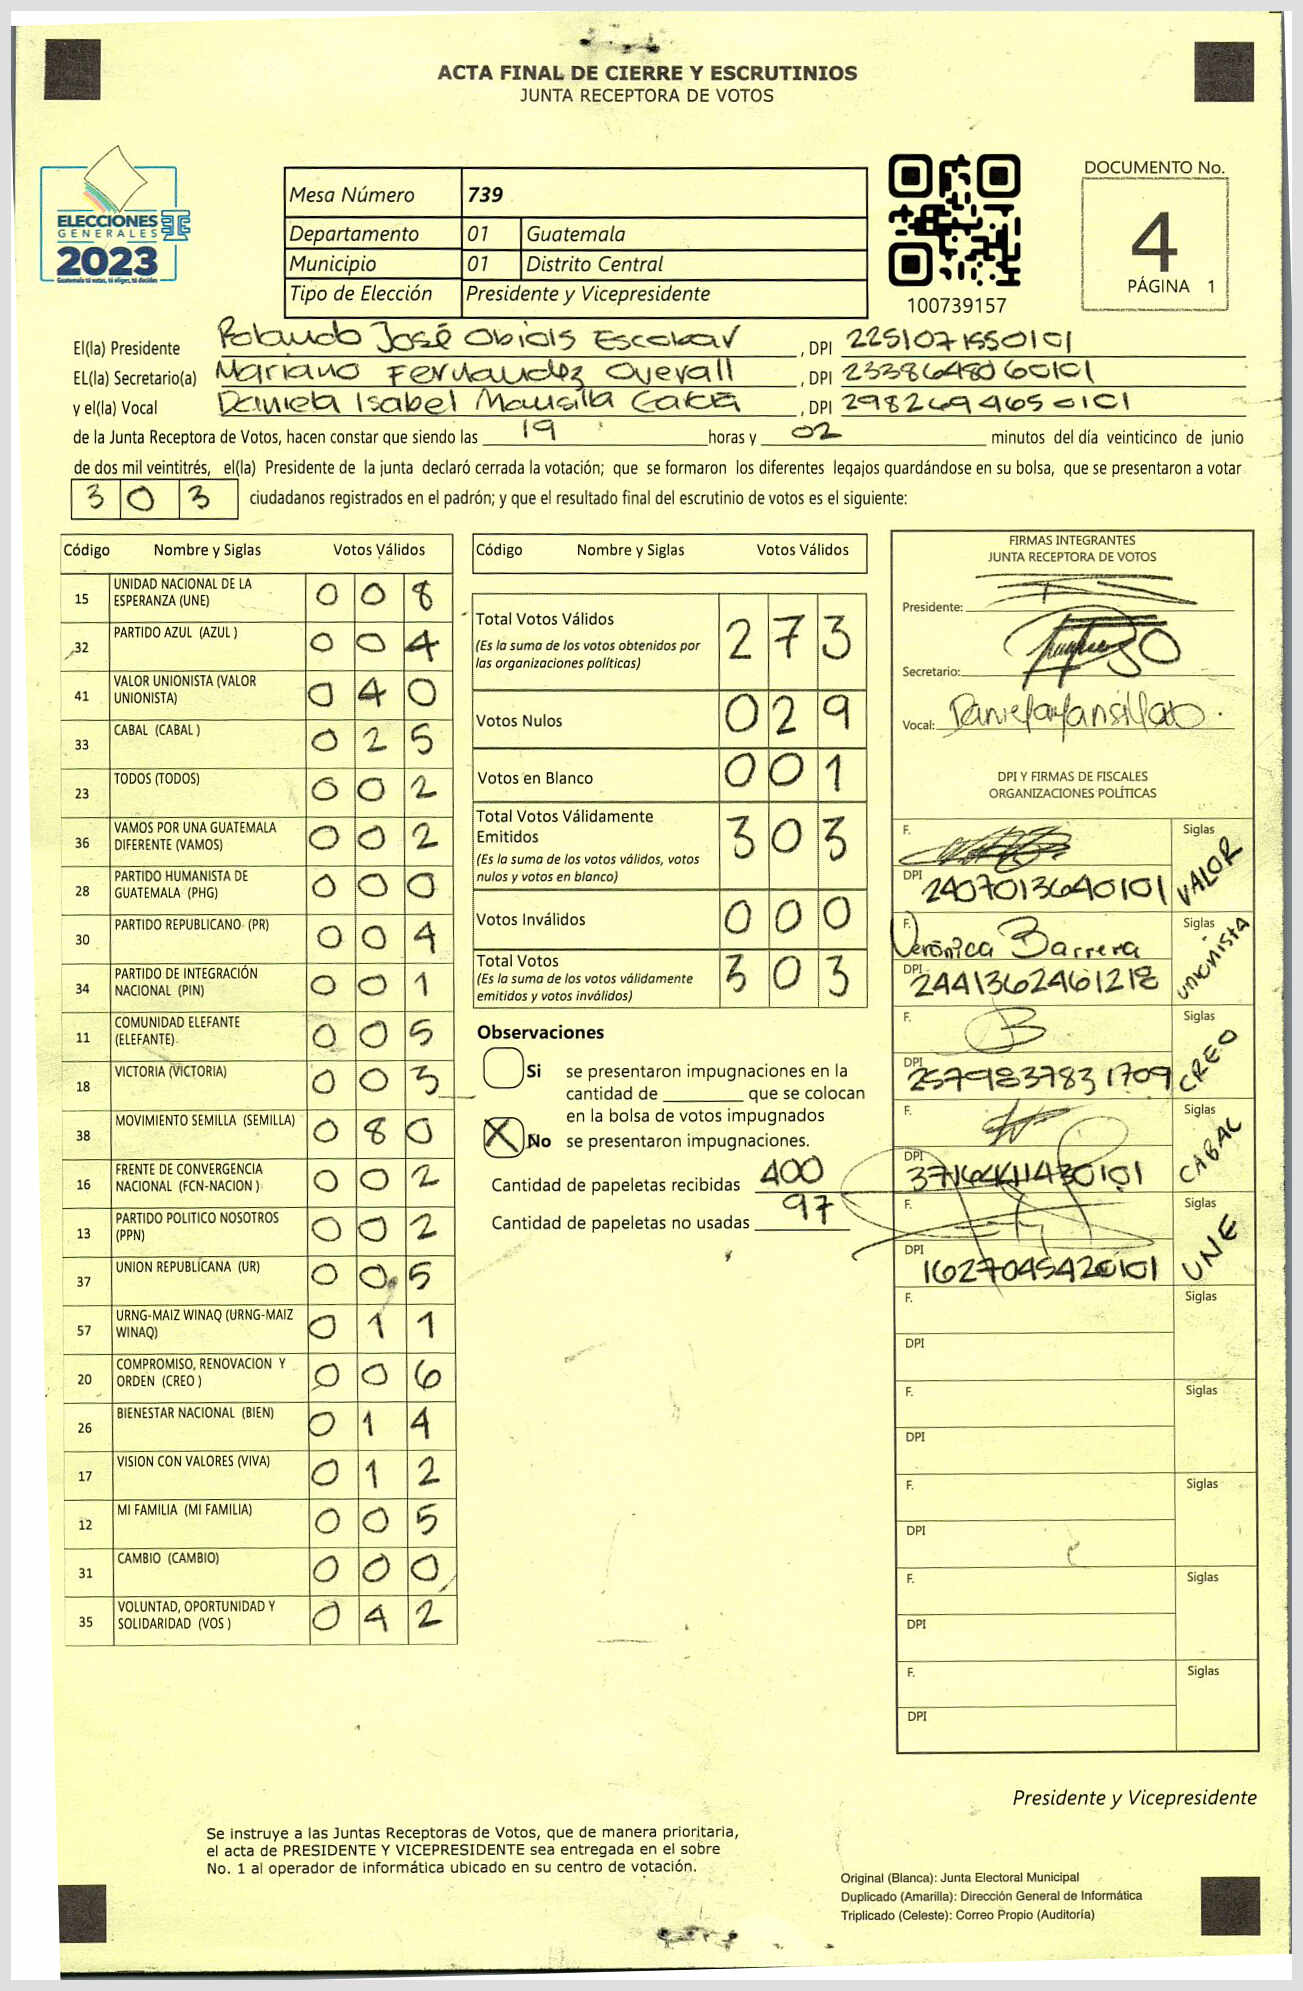 ACTA FINAL DE CIERRE Y ESCRUTINIOS
JUNTA RECEPTORA DE VOTOS
ELECCIONES
GENERALES
2023
Guatemala tú votas, tú eliges, tú decides
Mesa Número 739
Departamento 01 Guatemala
Municipio 01 Distrito Central
Tipo de Elección Presidente y Vicepresidente
100739157
DOCUMENTO No.
4
PÁGINA 1
El(la) Presidente Rolando José Obiols Escobar, DPI 2251071550101
EL(la) Secretario(a) Mariano Fernandez Overall, DPI 2338648060101
y el(la) Vocal Daniela Isabel Mansilla, DPI 2982694650101
de la Junta Receptora de Votos, hacen constar que siendo las 19 horas y 02 minutos del día veinticinco de junio
de dos mil veintitrés, el(la) Presidente de la junta declaró cerrada la votación; que se formaron los diferentes legajos guardándose en su bolsa, que se presentaron a votar
303 ciudadanos registrados en el padrón; y que el resultado final del escrutinio de votos es el siguiente:
Código Nombre y Siglas Votos Válidos
15 UNIDAD NACIONAL DE LA ESPERANZA (UNE) 008
32 PARTIDO AZUL (AZUL ) 004
41 VALOR UNIONISTA (VALOR UNIONISTA) 040
33 CABAL (CABAL ) 025
23 TODOS (TODOS) 002
36 VAMOS POR UNA GUATEMALA DIFERENTE (VAMOS) 002
28 PARTIDO HUMANISTA DE GUATEMALA (PHG) 000
30 PARTIDO REPUBLICANO (PR) 004
34 PARTIDO DE INTEGRACIÓN NACIONAL (PIN) 001
11 COMUNIDAD ELEFANTE (ELEFANTE) 005
18 VICTORIA (VICTORIA) 003
38 MOVIMIENTO SEMILLA (SEMILLA) 080
16 FRENTE DE CONVERGENCIA NACIONAL (FCN-NACION ) 002
13 PARTIDO POLITICO NOSOTROS (PPN) 002
37 UNION REPUBLICANA (UR) 005
57 URNG-MAIZ WINAQ (URNG-MAIZ WINAQ) 011
20 COMPROMISO, RENOVACION Y ORDEN (CREO ) 006
26 BIENESTAR NACIONAL (BIEN) 014
17 VISION CON VALORES (VIVA) 012
12 MI FAMILIA (MI FAMILIA) 005
31 CAMBIO (CAMBIO) 000
35 VOLUNTAD, OPORTUNIDAD Y SOLIDARIDAD (VOS ) 042
Código Nombre y Siglas Votos Válidos
Total Votos Válidos 273
(Es la suma de los votos obtenidos por
las organizaciones políticas)
Votos Nulos 029
Votos en Blanco 001
Total Votos Válidamente
Emitidos 303
(Es la suma de los votos válidos, votos
nulos y votos en blanco)
Votos Inválidos 000
Total Votos 303
(Es la suma de los votos válidamente
emitidos y votos inválidos)
Observaciones
Si se presentaron impugnaciones en la
cantidad de ________ que se colocan
en la bolsa de votos impugnados
X No se presentaron impugnaciones.
Cantidad de papeletas recibidas 400
Cantidad de papeletas no usadas 97
FIRMAS INTEGRANTES
JUNTA RECEPTORA DE VOTOS
Presidente:
Secretario:
Vocal:
DPI Y FIRMAS DE FISCALES
ORGANIZACIONES POLÍTICAS
F. Siglas VALOR
DPI 2407013640101
F. Verónica Barrera Siglas UNIONISTA
DPI 2441362461218
F. B Siglas CREO
DPI 2579837831709
F. Siglas CABAL
DPI
F. Siglas UNE
DPI 1627045420101
F. Siglas
DPI
F. Siglas
DPI
F. Siglas
DPI
F. Siglas
DPI
F. Siglas
DPI
Presidente y Vicepresidente
Se instruye a las Juntas Receptoras de Votos, que de manera prioritaria,
el acta de PRESIDENTE Y VICEPRESIDENTE sea entregada en el sobre
No. 1 al operador de informática ubicado en su centro de votación.
Original (Blanca): Junta Electoral Municipal
Duplicado (Amarilla): Dirección General de Informática
Triplicado (Celeste): Correo Propio (Auditoría)